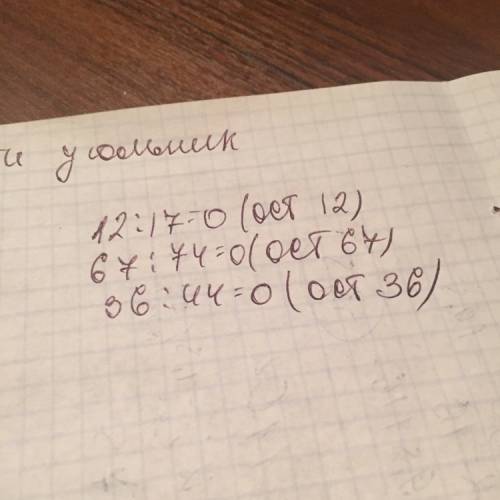 и угольник
12:17=0 (ост 12)
67:74=0(ост 67)
36:44=0 (ост 36)